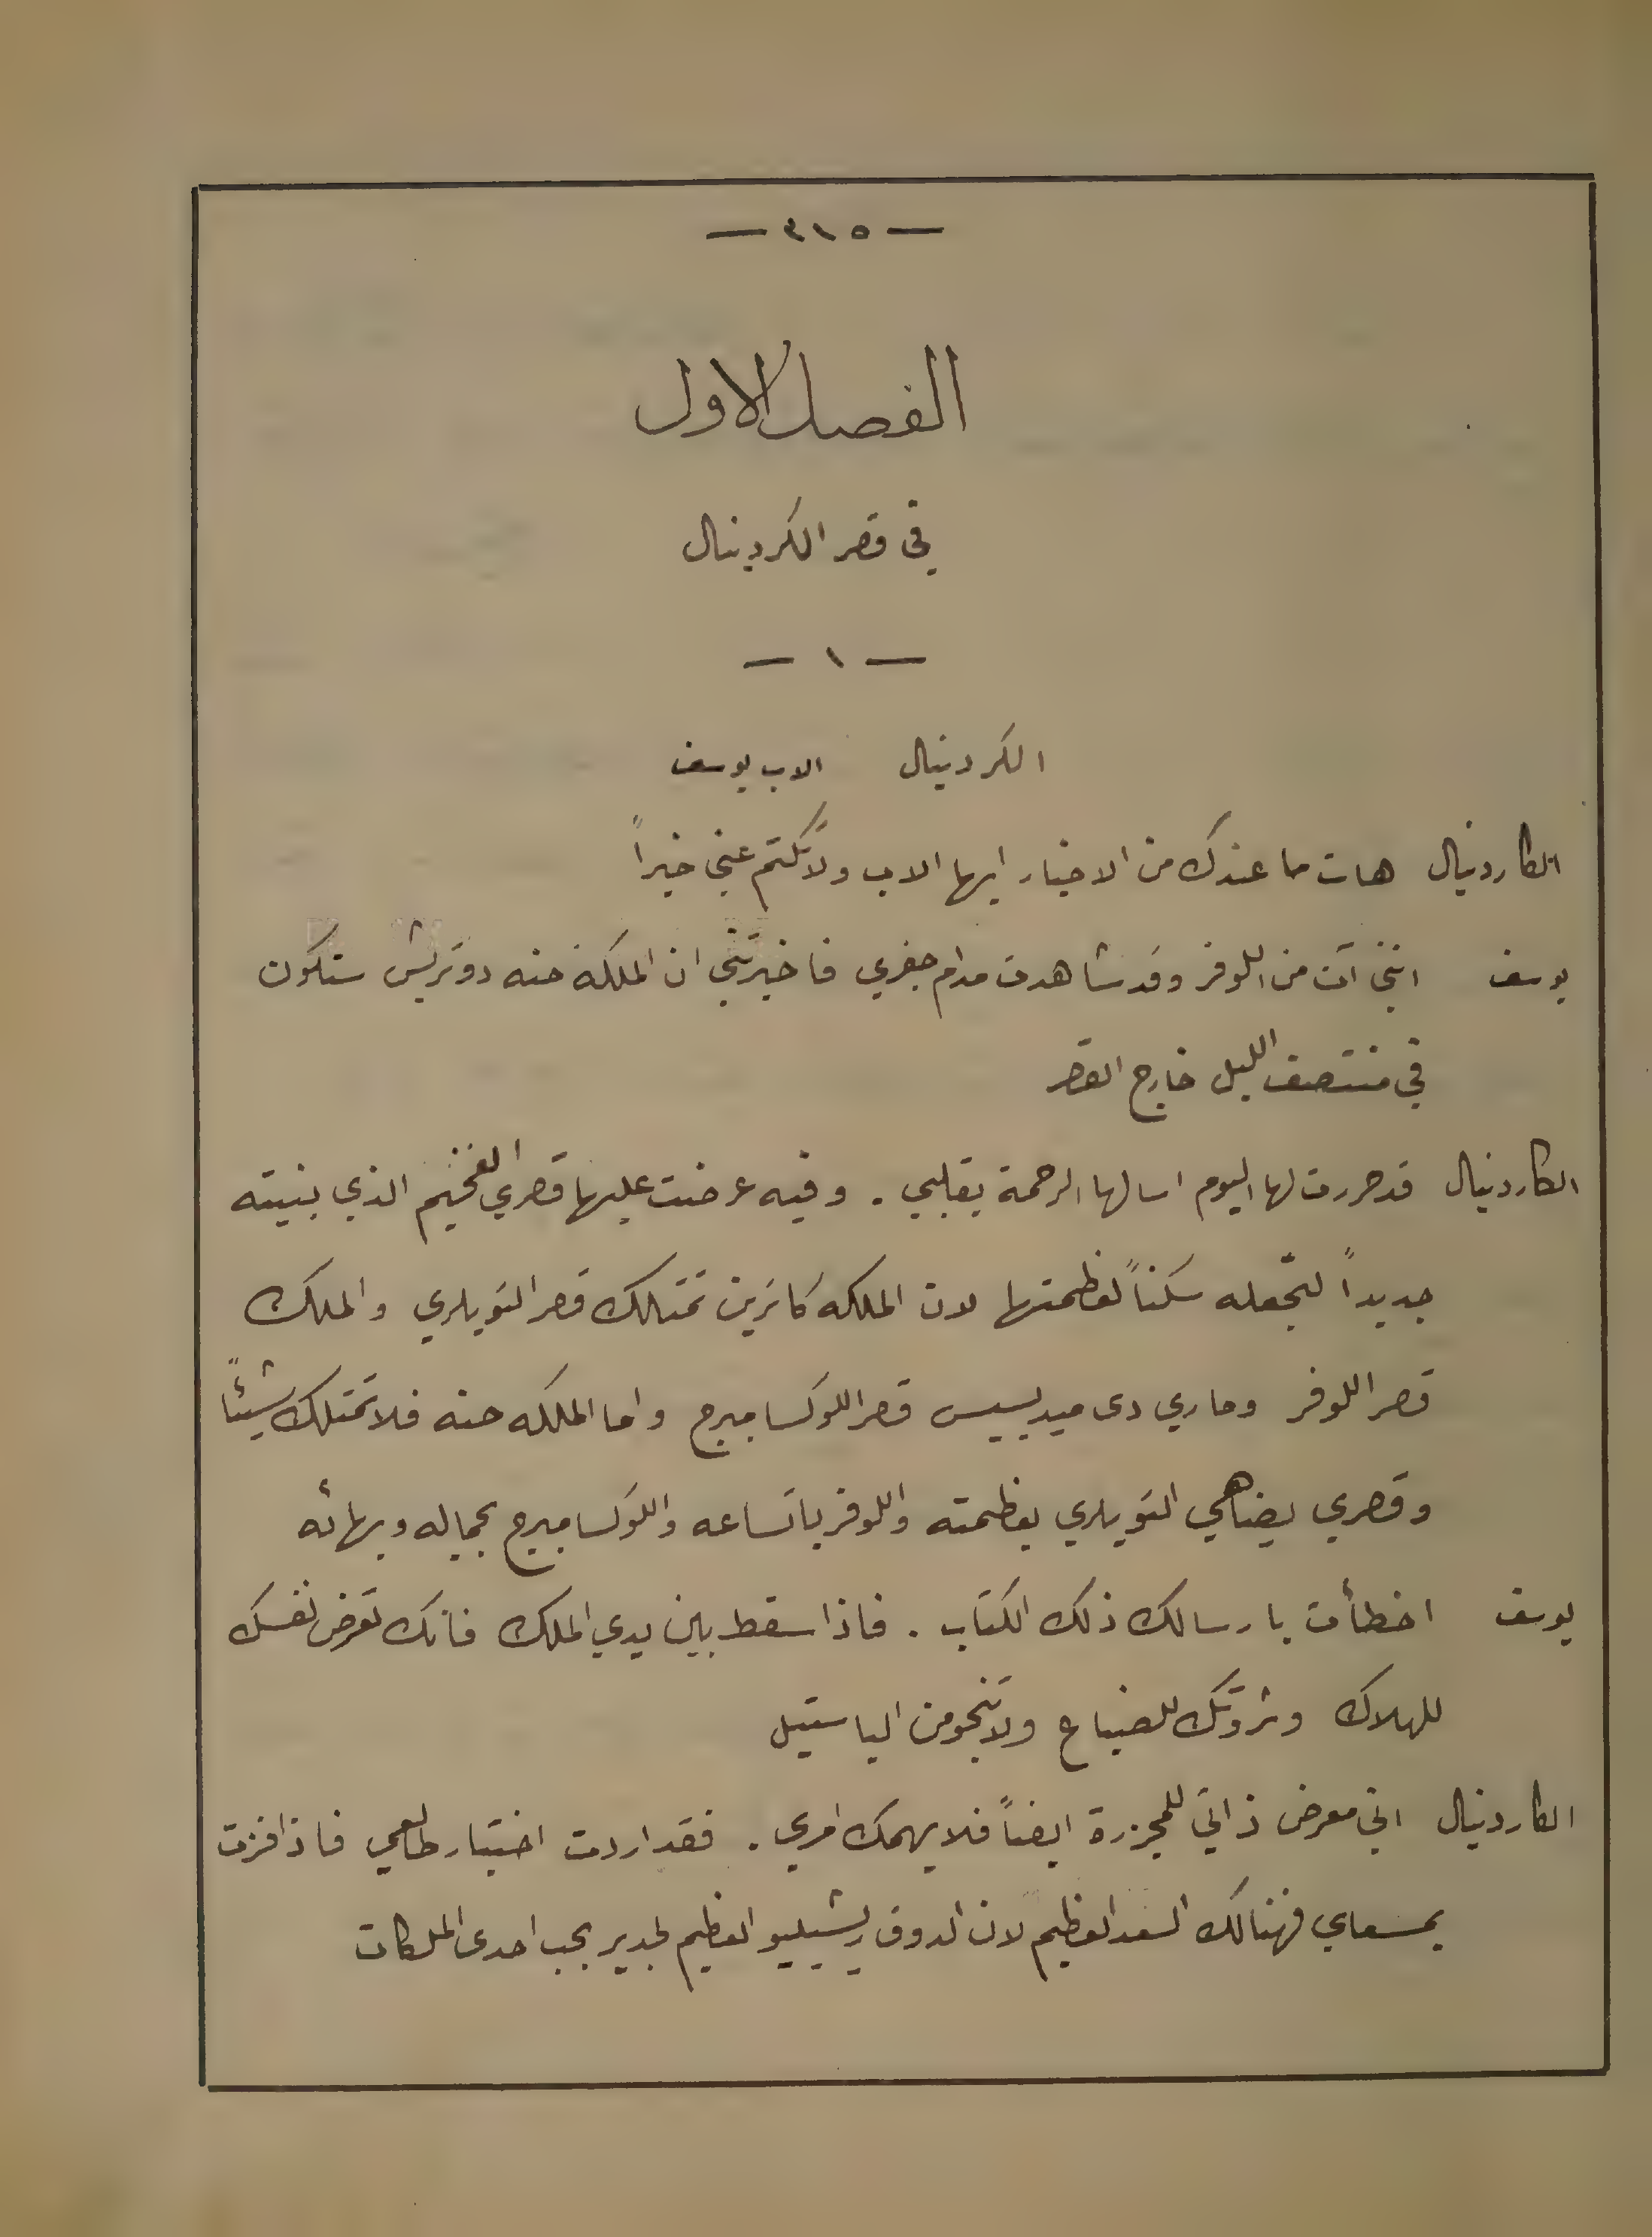 — ٤١٥ —
الفصل الاول
في قصر الكردينال
— ١ —
الكردينال    الاب يوسف
الكاردينال هات ما عندك من الاخبار ايها الاب ولا تكتم عني خبراً
يوسف انني آت من اللوفر وقد شاهدت مدام جفري فاخبرتني ان الملكة حنه دوتريش ستكون
في منتصف الليل خارج القصر
الكاردينال قد حررت لها اليوم اسالها الرحمة بقلبي . وفيه عرضت عليها قصري الفخيم الذي بنيته
جديداً لتجعله سكناً لعظمتها لان الملكه كاترين تمتلك قصر التويلري والملك
قصر اللوفر وماري دى ميديسيس قصر اللوكسامبرج واما الملكه حنه فلا تمتلك شيئاً
وقصري يضاهي التويلري بعظمته واللوفر باتساعه واللوكسامبرج بجماله وبهائه
يوسف اخطأت بارسالك ذلك الكتاب . فاذا سقط بين يدي الملك فانك تعرض نفسك
للهلاك وثروتك للضياع ولا تنجو من الباستيل
الكاردينال اني معرض ذاتي للمجزرة ايضاً فلا يهمك امري . فقد اردت اختبار طالعي فاذا فزت
بمسعاي فهنالك السعد العظيم لان الدوق ريشيليو العظيم لجدير بحب احدى الملكات